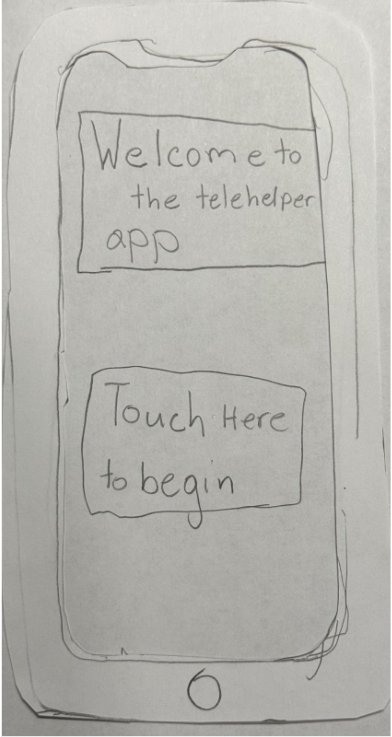 Welcome to
the telehelper
app
Touch Here
to begin